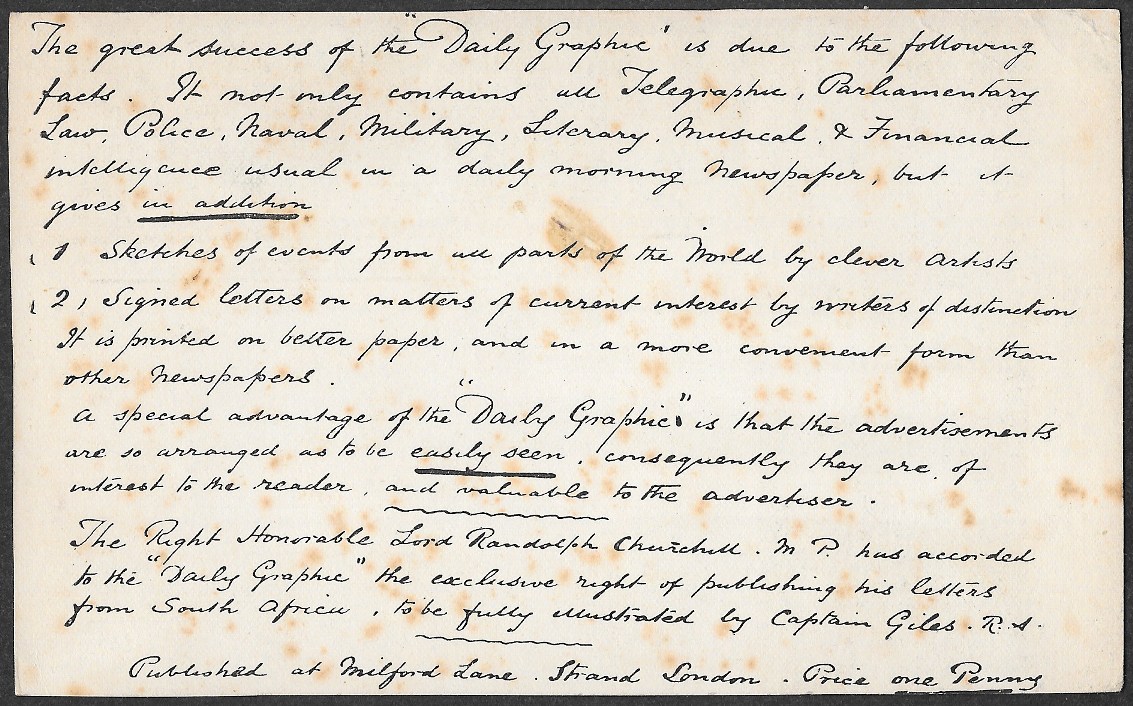 The great success of the "Daily Graphic" is due to the following
facts. It not only contains all Telegraphic, Parliamentary
Law, Police, Naval, Military, Literary, Musical, & Financial
intelligence usual in a daily morning Newspaper, but it
gives in addition
(1 Sketches of events from all parts of the World by clever Artists
(2) Signed letters on matters of current interest by writers of distinction
It is printed on better paper, and in a more convenient form than
other Newspapers.
A special advantage of the "Daily Graphic" is that the advertisements
are so arranged as to be easily seen, consequently they are of
interest to the reader, and valuable to the advertiser.
The Right Honorable Lord Randolph Churchill. M P. has accorded
to the "Daily Graphic" the exclusive right of publishing his letters
from South Africa, to be fully illustrated by Captain Giles. R. A.
Published at Milford Lane. Strand London. Price one Penny